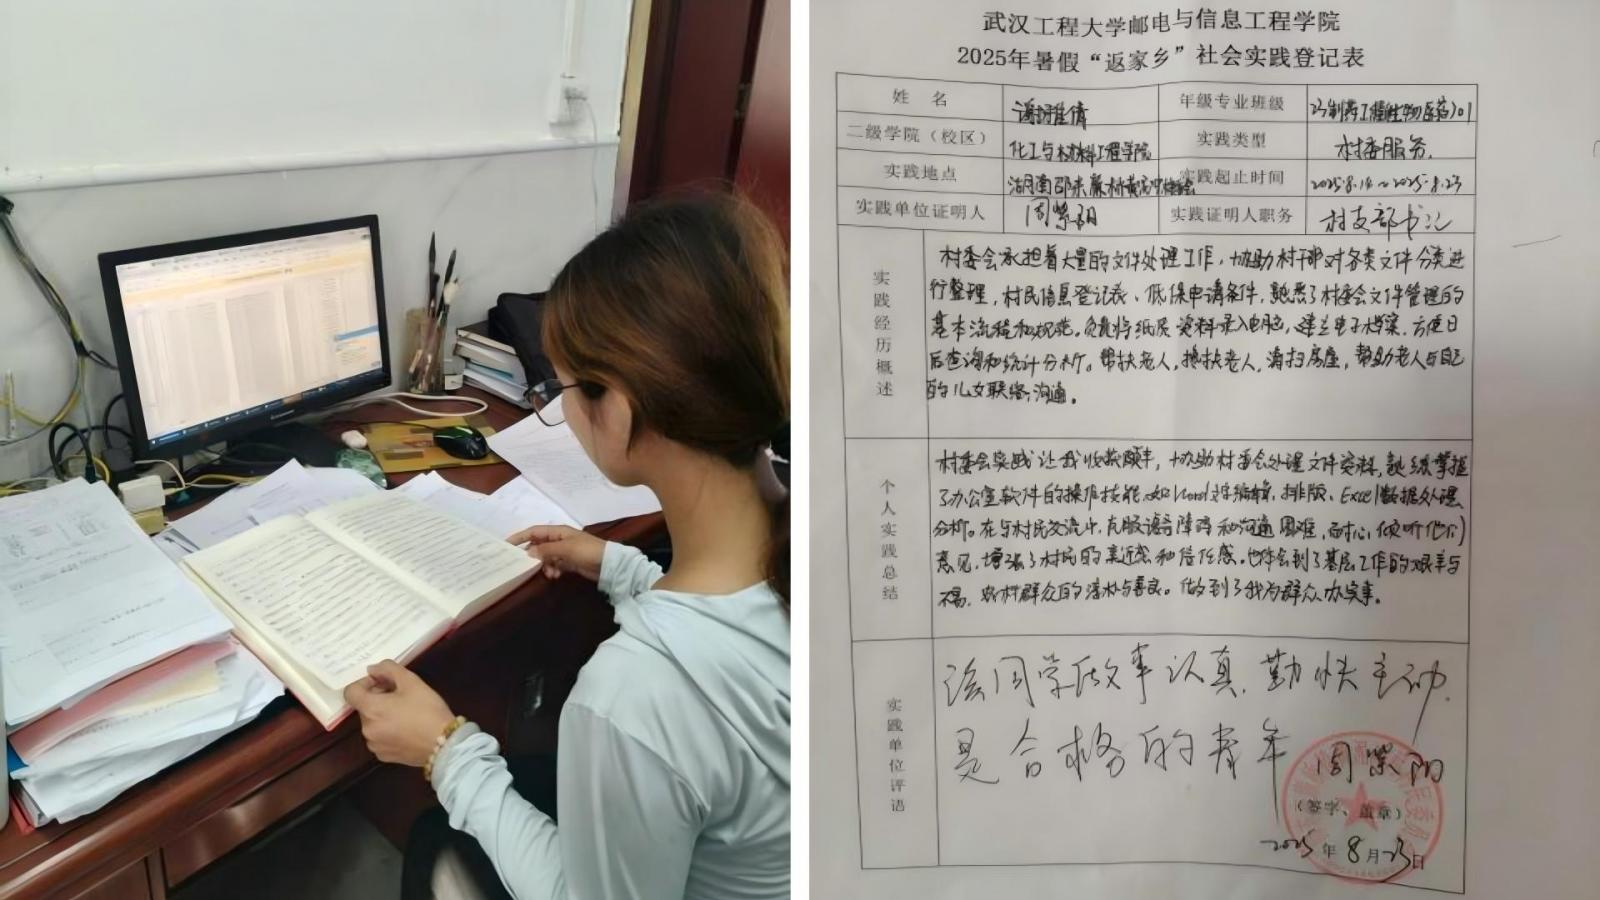 武汉工程大学邮电与信息工程学院
2025年暑假“返家乡”社会实践登记表
姓 名
谢雅倩
年级专业班级
23制药工程(生物医药)01
二级学院（校区）
化工与材料工程学院
实践类型
村委服务.
实践地点
实践起止时间
2025.8.14~2025.8.23
实践单位证明人
周紫阳
实践证明人职务
村支部书记
实践经历概述
村委会承担着大量的文件处理工作，协助村干部对各类文件分类进
行整理，村民信息登记表、低保申请条件，熟悉了村委会文件管理的
基本流程和规范。负责将纸质资料录入电脑，建立电子档案，方便日
后查询和统计分析。帮扶老人，搀扶老人，清扫房屋，帮助老人与自己
的儿女联络，沟通。
个人实践总结
村委会实践让我收获颇丰，协助村委会处理文件资料，熟练掌握
了办公室软件的操作技能，如Word文字编辑，排版、Excel数据处理
分析。在与村民交流中，克服语言障碍和沟通困难，耐心倾听他们
意见，增强了村民的亲近感和信任感。也体会到了基层工作的艰辛与
不易，农村群众的淳朴与善良。做到了我为群众办实事。
实践单位评语
该同学做事认真，勤快主动，
是合格的青年
周紫阳
（签字、盖章）
2025年8月23日